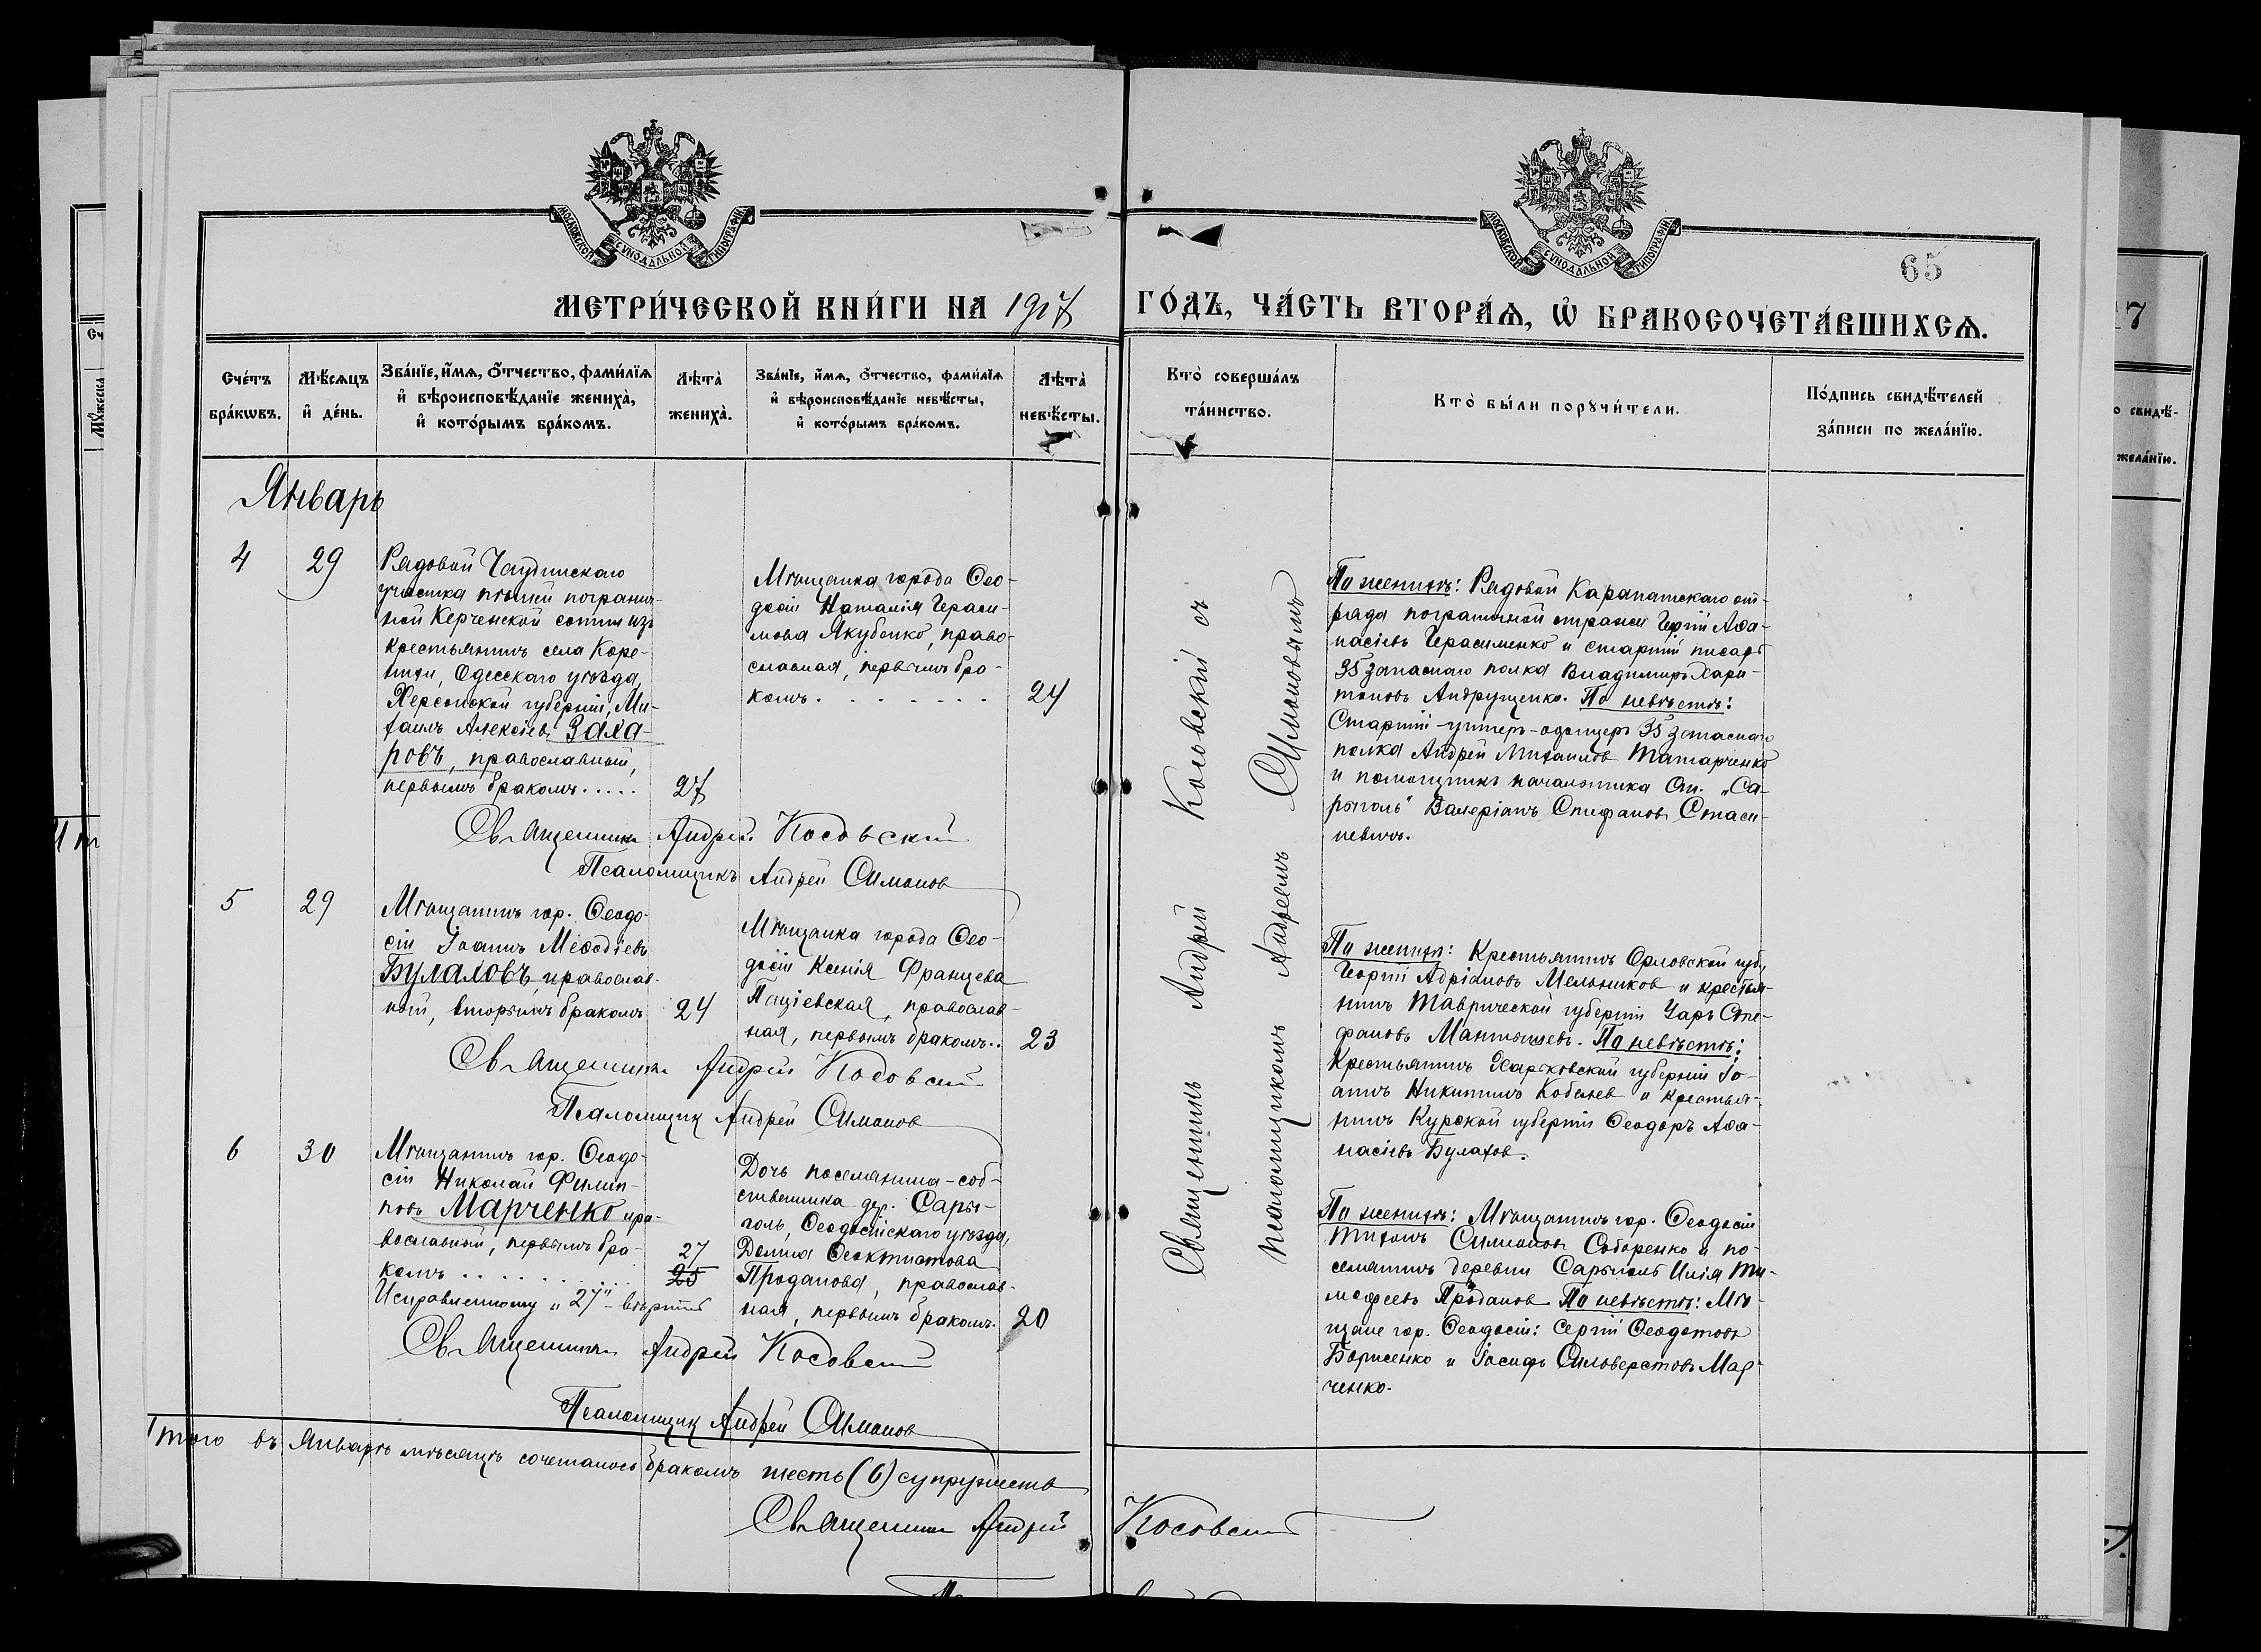 МОСКОВСКОЙ СѴНОДАЛЬНОЙ ТИПОГРАФІИ
МОСКОВСКОЙ СѴНОДАЛЬНОЙ ТИПОГРАФІИ
65
МЕТРИ́ЧЕСКОЙ КНИ́ГИ НА 1917 ГО́ДЪ, ЧА́СТЬ ВТОРА́Я, Ѡ҆ БРАКОСОЧЕТА́ВШИХСЯ.
Сче́тъ бра́кѡвъ.
Мѣ́сяцъ и҆ де́нь.
Зва́нїе, и҆́мя, ѻ҆́тчество, фами́лїя
и҆ вѣроисповѣ́данїе жениха̀,
и҆ кото́рымъ бра́комъ.
Лѣта̀ жениха̀.
Зва́нїе, и҆́мя, ѻ҆́тчество, фами́лїя
и҆ вѣроисповѣ́данїе невѣ́сты,
и҆ кото́рымъ бра́комъ.
Лѣта̀ невѣ́сты.
Кто̀ соверша́лъ
та́инство.
Кто̀ бы́ли порꙋчи́тели.
По́дпись свидѣ́телей
за́писи по жела́нїю.
Январь
4
29
Рядовой Чаудинскаго
участка пѣшей погранич-
ной Керченской сотни изъ
крестьянинъ села Коре-
нихи, Одесскаго уѣзда,
Херсонской губерніи, Ми-
хаилъ Алексіевъ Заха-
ровъ, православный,
первымъ бракомъ.....
27
Мѣщанка города Ѳео-
досіи Наталія Гераси-
мова Якубенко, право-
славная, первымъ бра-
комъ. . . . . . .
24
По женихѣ: Рядовой Карапатскаго от-
ряда пограничной стражи Георгій Аѳа-
насіевъ Герасименко и старшій писарь
35 запаснаго полка Владимиръ Хари-
тоновъ Андрущенко. По невѣстѣ:
Старшій унтеръ-офицеръ 35 запаснаго
полка Андрей Михаиловъ Татарченко
и помощникъ начальника Ст. „Са-
рыголь" Валеріанъ Стефановъ Стаси-
невичъ.
Священникъ Андрей Косовскій
Псаломщикъ Андрей Симонов
5
29
Мѣщанинъ гор. Ѳеодо-
сіи Іоаннъ Меѳодіевъ
Булаховъ, православ-
ный, вторымъ бракомъ
24
Мѣщанка города Ѳео-
досіи Ксенія Францева
Паціевская, православ-
ная, первымъ бракомъ..
23
По женихѣ: Крестьянинъ Орловской губ.,
Георгій Адріановъ Мельниковъ и крестья-
нинъ Таврической губерніи Уаръ Сте-
фановъ Мантышевъ. По невѣстѣ:
Крестьянинъ Харьковской губерніи Іо-
аннъ Никитинъ Кобелев и крестья-
нинъ Курской губерніи Ѳеодоръ Аѳа-
насіевъ Булахов.
Священникъ Андрей Косовскій
Псаломщикъ Андрей Симонов
6
30
Мѣщанинъ гор. Ѳеодо-
сіи Николай Филип-
повъ Марченко пра-
вославный, первымъ бра-
комъ . . . . . . . . . .
27
25
Исправленному „27" - вѣрить
Дочь поселянина-соб-
ственника дер. Сары-
голь, Ѳеодосійскаго уѣзда,
Домна Ѳеоктистова
Проданова, православ-
ная, первымъ бракомъ.
20
По женихѣ: Мѣщанинъ гор. Ѳеодосіи
Тихонъ Симеонов Соборенко и по-
селянинъ деревни Сарыголь Илія Ти-
моѳеевъ Продановъ. По невѣстѣ: Мѣ-
щане гор. Ѳеодосіи: Сергій Ѳеодотовъ
Борисенко и Іосифъ Сильверстовъ Мар-
ченко.
Священникъ Андрей Косовскій
Псаломщикъ Андрей Симонов
Священникъ Андрей Косовскій съ
псаломщикомъ Андреемъ Симоновымъ
Итого въ Январѣ мѣсяцѣ сочеталось бракомъ шесть (6) супружеств
Священникъ Андрей Косовскій